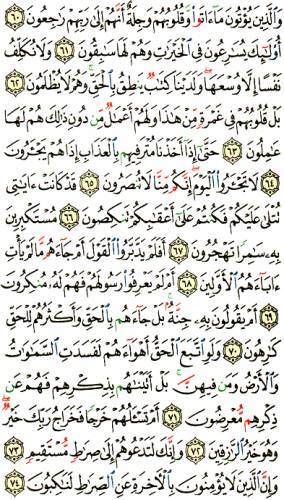 وَالَّذِينَ يُؤْتُونَ مَا ءَاتَوا وَّقُلُوبُهُمْ وَجِلَةٌ أَنَّهُمْ إِلَىٰ رَبِّهِمْ رَٰجِعُونَ ٦٠
أُو۟لَٰٓئِكَ يُسَٰرِعُونَ فِي ٱلْخَيْرَٰتِ وَهُمْ لَهَا سَٰبِقُونَ ٦١ وَلَا نُكَلِّفُ
نَفْسًا إِلَّا وُسْعَهَا وَلَدَيْنَا كِتَٰبٌ يَنطِقُ بِٱلْحَقِّ وَهُمْ لَا يُظْلَمُونَ ٦٢
بَلْ قُلُوبُهُمْ فِي غَمْرَةٍ مِّنْ هَٰذَا وَلَهُمْ أَعْمَٰلٌ مِّن دُونِ ذَٰلِكَ هُمْ لَهَا
عَٰمِلُونَ ٦٣ حَتَّىٰٓ إِذَآ أَخَذْنَا مُتْرَفِيهِم بِٱلْعَذَابِ إِذَا هُمْ يَجْـَٔرُونَ
٦٤ لَا تَجْـَٔرُوا۟ ٱلْيَوْمَ إِنَّكُم مِّنَّا لَا تُنصَرُونَ ٦٥ قَدْ كَانَتْ ءَايَٰتِي
تُتْلَىٰ عَلَيْكُمْ فَكُنتُمْ عَلَىٰٓ أَعْقَٰبِكُمْ تَنكِصُونَ ٦٦ مُسْتَكْبِرِينَ
بِهِۦ سَٰمِرًا تَهْجُرُونَ ٦٧ أَفَلَمْ يَدَّبَّرُوا۟ ٱلْقَوْلَ أَمْ جَآءَهُم مَّا لَمْ يَأْتِ
ءَابَآءَهُمُ ٱلْأَوَّلِينَ ٦٨ أَمْ لَمْ يَعْرِفُوا۟ رَسُولَهُمْ فَهُمْ لَهُۥ مُنكِرُونَ
٦٩ أَمْ يَقُولُونَ بِهِۦ جِنَّةٌۢ بَلْ جَآءَهُم بِٱلْحَقِّ وَأَكْثَرُهُمْ لِلْحَقِّ
كَٰرِهُونَ ٧٠ وَلَوِ ٱتَّبَعَ ٱلْحَقُّ أَهْوَآءَهُمْ لَفَسَدَتِ ٱلسَّمَٰوَٰتُ
وَٱلْأَرْضُ وَمَن فِيهِنَّ بَلْ أَتَيْنَٰهُم بِذِكْرِهِمْ فَهُمْ عَن
ذِكْرِهِم مُّعْرِضُونَ ٧١ أَمْ تَسْـَٔلُهُمْ خَرْجًا فَخَرَاجُ رَبِّكَ خَيْرٌ
وَهُوَ خَيْرُ ٱلرَّٰزِقِينَ ٧٢ وَإِنَّكَ لَتَدْعُوهُمْ إِلَىٰ صِرَٰطٍ مُّسْتَقِيمٍ ٧٣
وَإِنَّ ٱلَّذِينَ لَا يُؤْمِنُونَ بِٱلْـَٔاخِرَةِ عَنِ ٱلصِّرَٰطِ لَنَٰكِبُونَ ٧٤